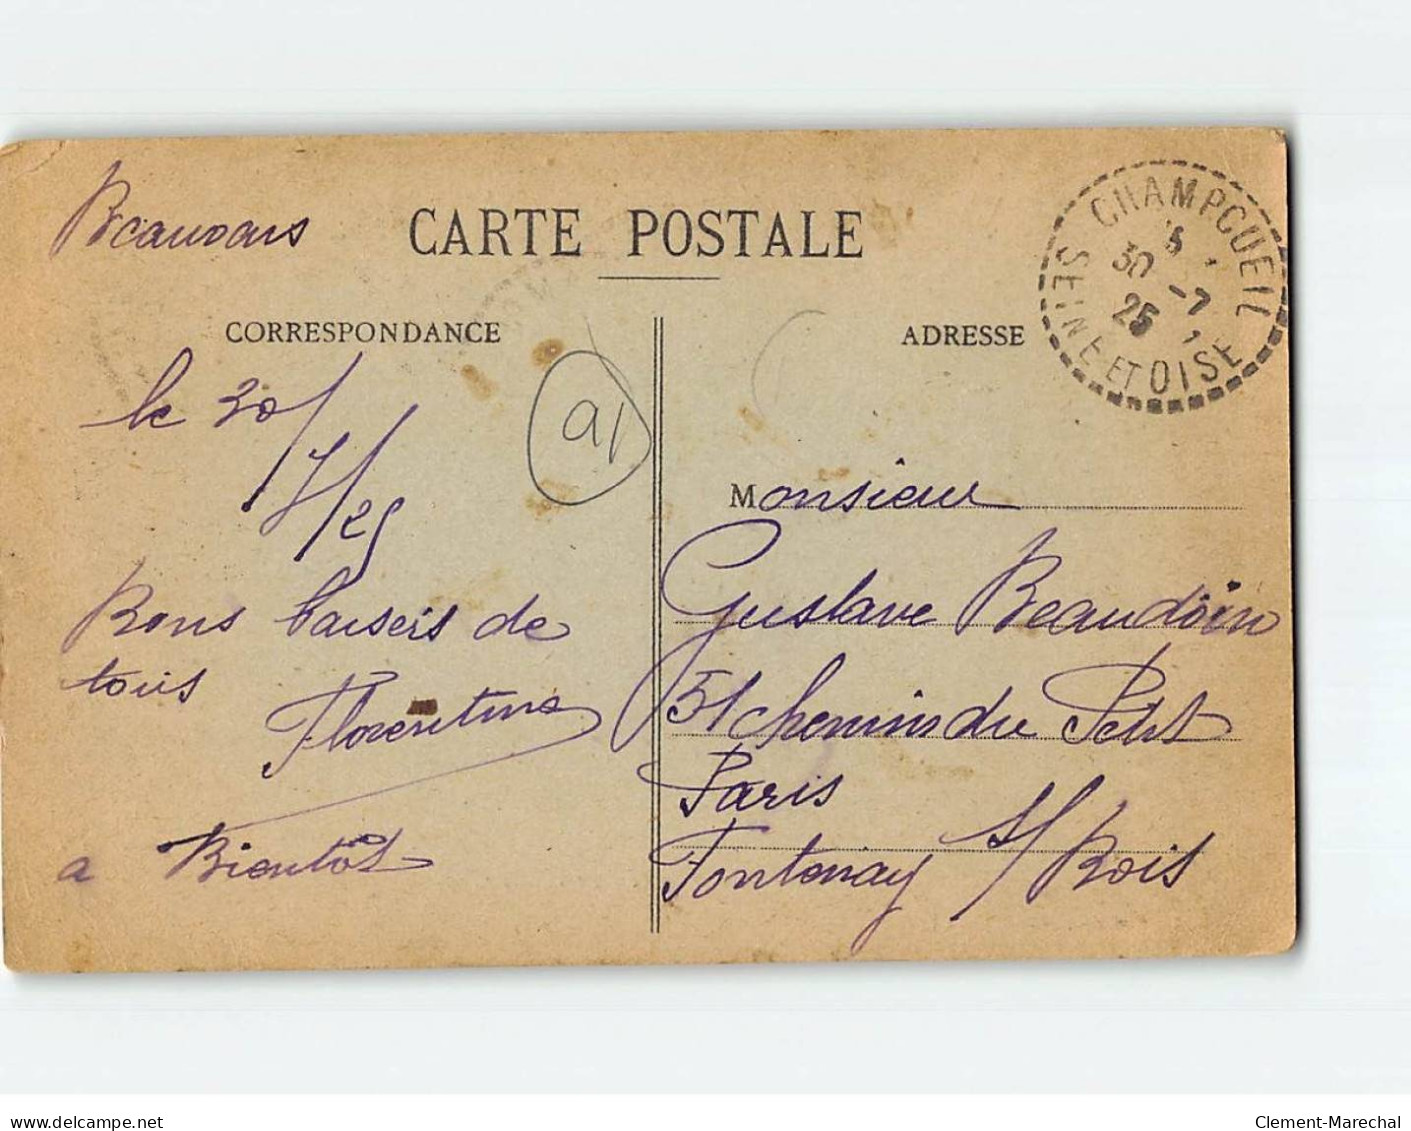 Beauvais
CARTE POSTALE
CORRESPONDANCE
ADRESSE
CHAMPCUEIL
30 -7
25
SEINE ET OISE
le 30/7/25
Bons baiseis de
tous
Florentine
a Bientôt
91
Monsieur
Gustave Beaudoin
51 chemin du Petit
Paris
Fontenay s/ Bois
www.delcampe.net
Clement-Marechal